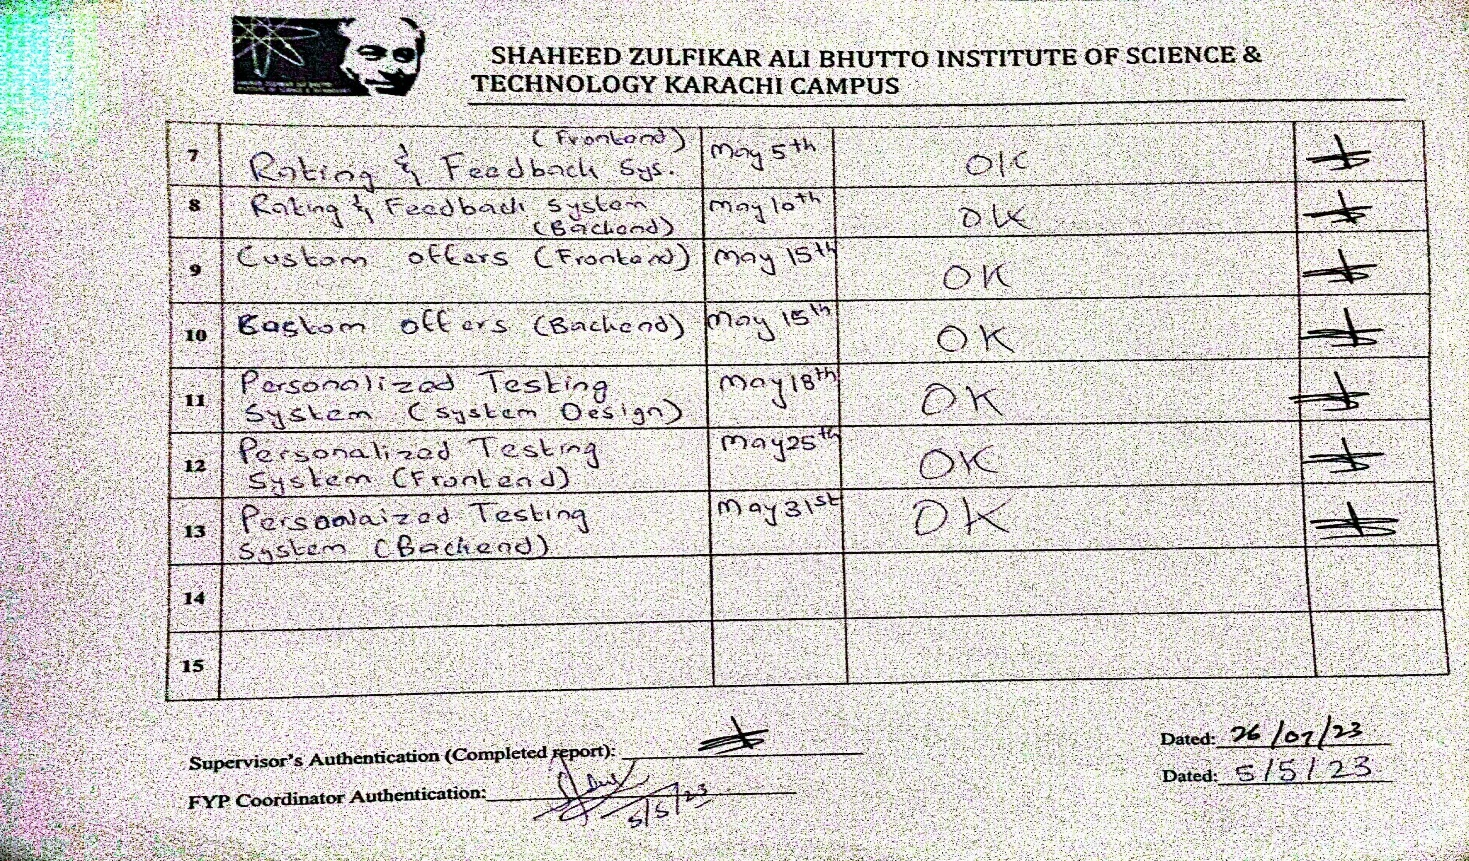 SHAHEED ZULFIKAR ALI BHUTTO INSTITUTE OF SCIENCE &
TECHNOLOGY KARACHI CAMPUS
7 Rating & Feedback Sys. (Frontend) May 5th OK
8 Rating & Feedback System (Backend) May 10th OK
9 Custom offers (Frontend) May 15th OK
10 Custom offers (Backend) May 15th OK
11 Personalized Testing May 18th OK
System (System Design)
12 Personalized Testing May 25th OK
System (Frontend)
13 Testing May 31st OK
System (Backend)
14
15
Supervisor's Authentication (Completed report): Dated: 26/07/23
FYP Coordinator Authentication: 5/5/23 Dated: 5/5/23